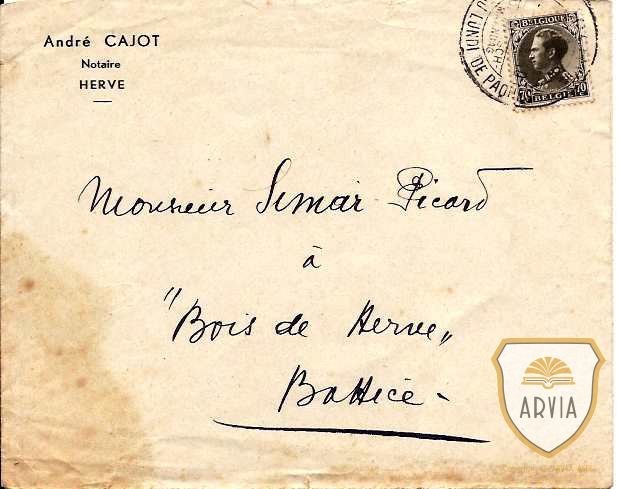 André CAJOT
Notaire
HERVE
BELGIQUE
70 70
BELGIE
LUNDI DE PAQ
Monsieur Simar-Picard
à
"Bois de Herve"
Battice
ARVIA